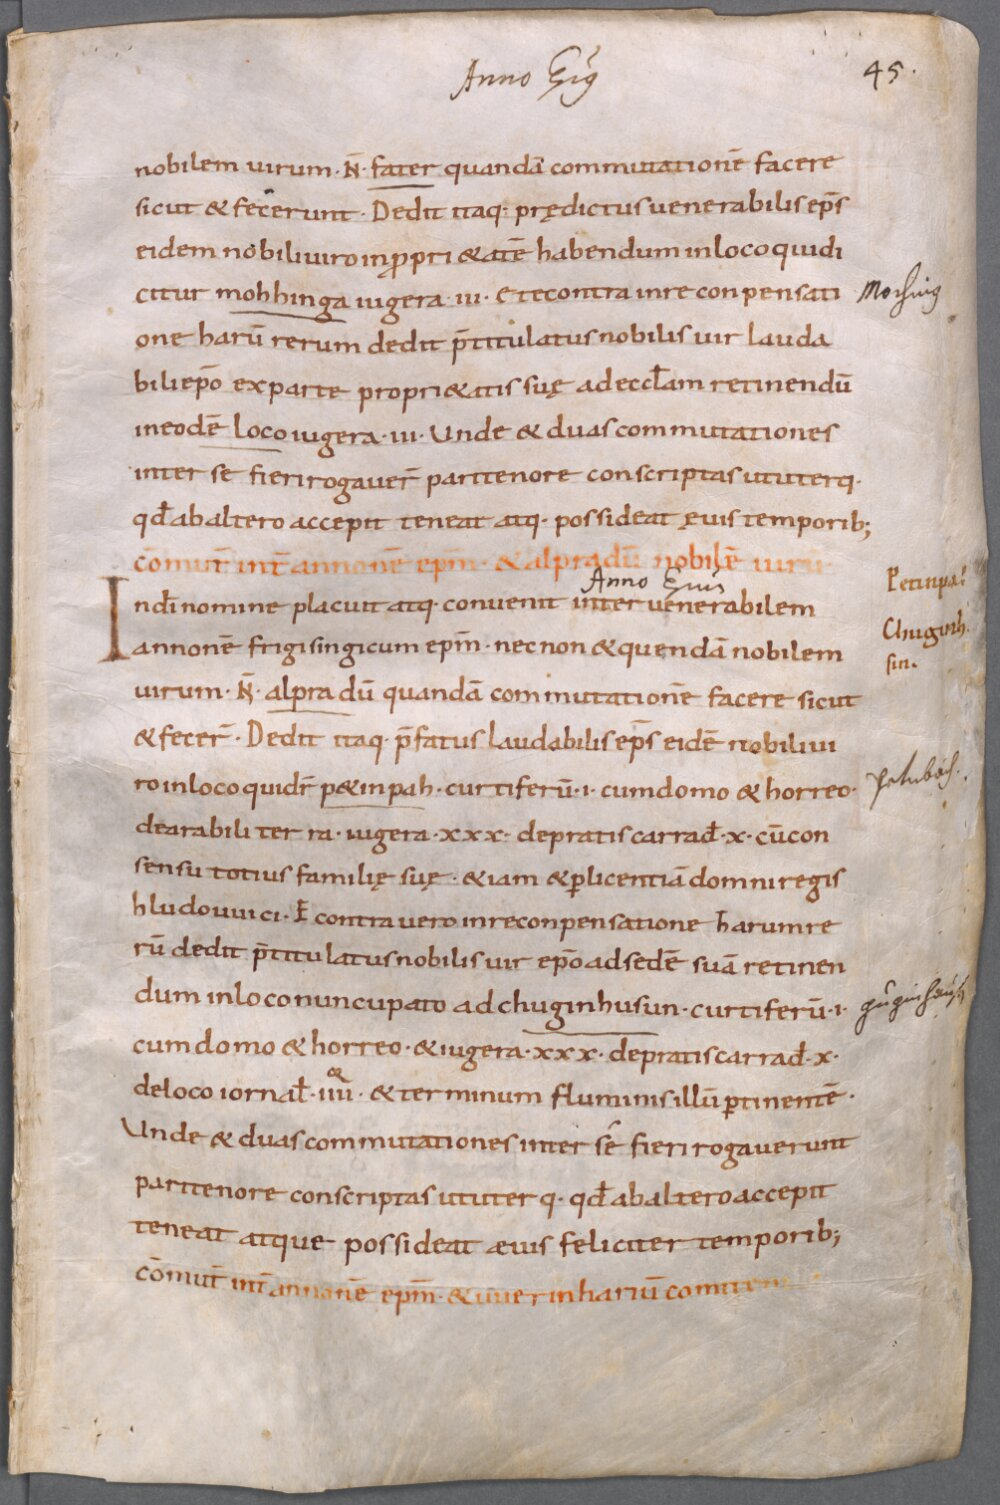 Anno Eiꝰ
45.
nobilem uirum · N̄ · fater quandā commutationē facere
sicut & fecerunt · Dedit itaq· prędictus uenerabilis ep̄s
eidem nobili uiro in ꝓpri&atē habendum in loco qui di
citur mohhinga iugera · iii · Et econtra in reconpensati
Moching
one harū rerum dedit p̄titulatus nobilis uir lauda
bili ep̄o ex parte propri&atis suę ad eccl̄am retinendū
in eodē loco iugera · iii · Unde & duas commutationes
inter se fieri rogauer̄ pari tenore conscriptas ut uterq·
qd̄ ab altero accepit teneat atq· possideat ęuis temporib;
com̄ut̄ int̄ annonē ep̄m · & alpradū nobilē uirū
Anno Eius
In dī nomine placuit atq· conuenit inter uenerabilem
Petinpa
Chuginh
sin.
annonē frigisingicum ep̄m · nec non & quendā nobilem
uirum · N̄ · alpradū quandā commutationē facere sicut
& fecer̄ · Dedit itaq· p̄fatus laudabilis ep̄s eidē nobili ui
ro in loco qui dr̄ p&inpah · curtiferū · i · cum domo & horreo ·
Petnbach.
de arabili terra · iugera · xxx · de pratis carrad̄ · x · cū con
sensu totius familię suę · & iam & ꝑ licentiā domni regis
hludouuici · E contra uero in reconpensatione harum re
rū dedit p̄titulatus nobilis uir ep̄o ad sedē suā retinen
dum in loco nuncupato ad chuginhusun · curtiferū · i ·
cum domo & horreo · & iugera · xxx · de pratis carrad̄ · x ·
de loco iornal̄ · iiii · & terminum fluminis illū ꝑtinentē ·
Unde & duas commutationes inter se fieri rogauerunt
pari tenore conscriptas ut uterq· qd̄ ab altero accepit
teneat atque possideat æuis feliciter temporib;
com̄ut̄ int̄ annonē ep̄m · & uuerinhariū comitem